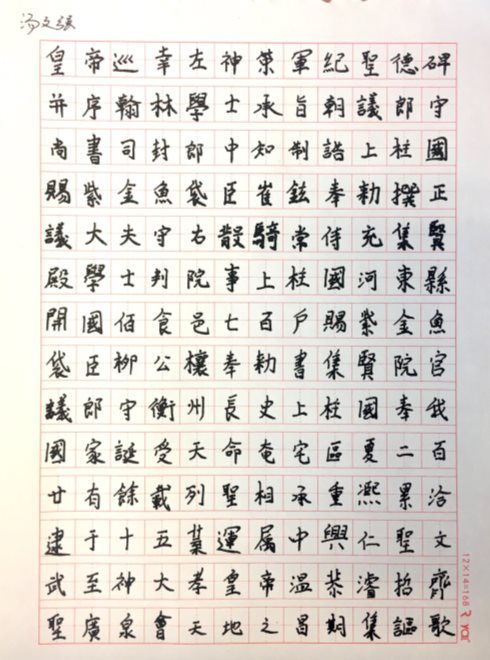 汤文瑗
皇帝巡幸左神策軍紀聖德碑
并序翰林學士承旨朝議郎守
尚書司封郎中知制誥上柱國
賜紫金魚袋臣崔鉉奉勑撰正
議大夫守右散騎常侍充集賢
殿學士判院事上柱國河東縣
開國伯食邑七百户賜紫金魚
袋臣柳公權奉勑書集賢院官
議郎守衡州長史上柱國奉我
國家誕受天命奄宅區夏二百
廿有餘載列聖相承重熙累洽
逮于十五葉運属中興仁聖文
武至神大孝皇帝温恭濬哲齊
聖廣泉會天地之昌期集謳歌
12×14=168